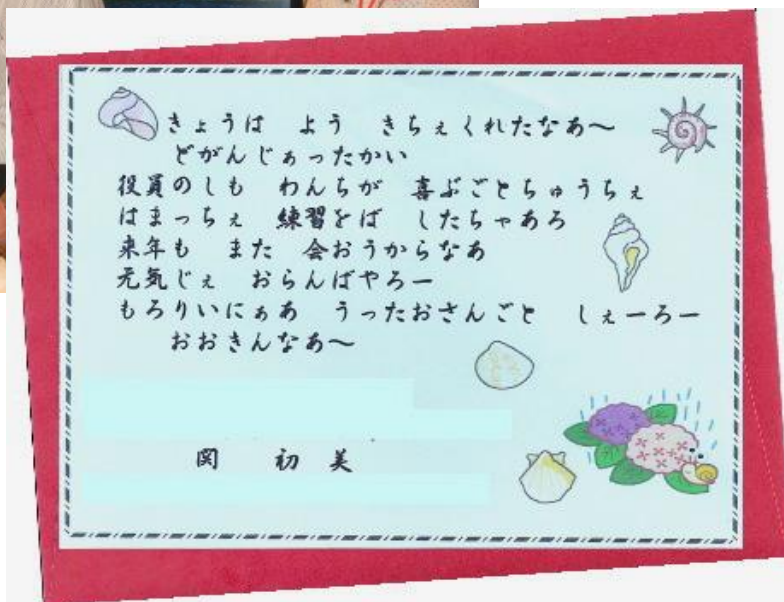 きょうは よう きちぇくれたなあ〜
どがんじぁったかい
役員のしも わんちが 喜ぶごとちゅうちぇ
はまっちぇ 練習をば したちゃあろ
来年も また 会おうからなあ
元気じぇ おらんばやろー
もろりいにぁあ うったおさんごと しぇーろー
おおきんなあ〜
関 初美